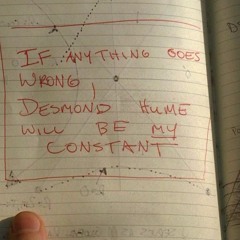 IF ANYTHING GOES
WRONG,
DESMOND HUME
WILL BE MY
CONSTANT